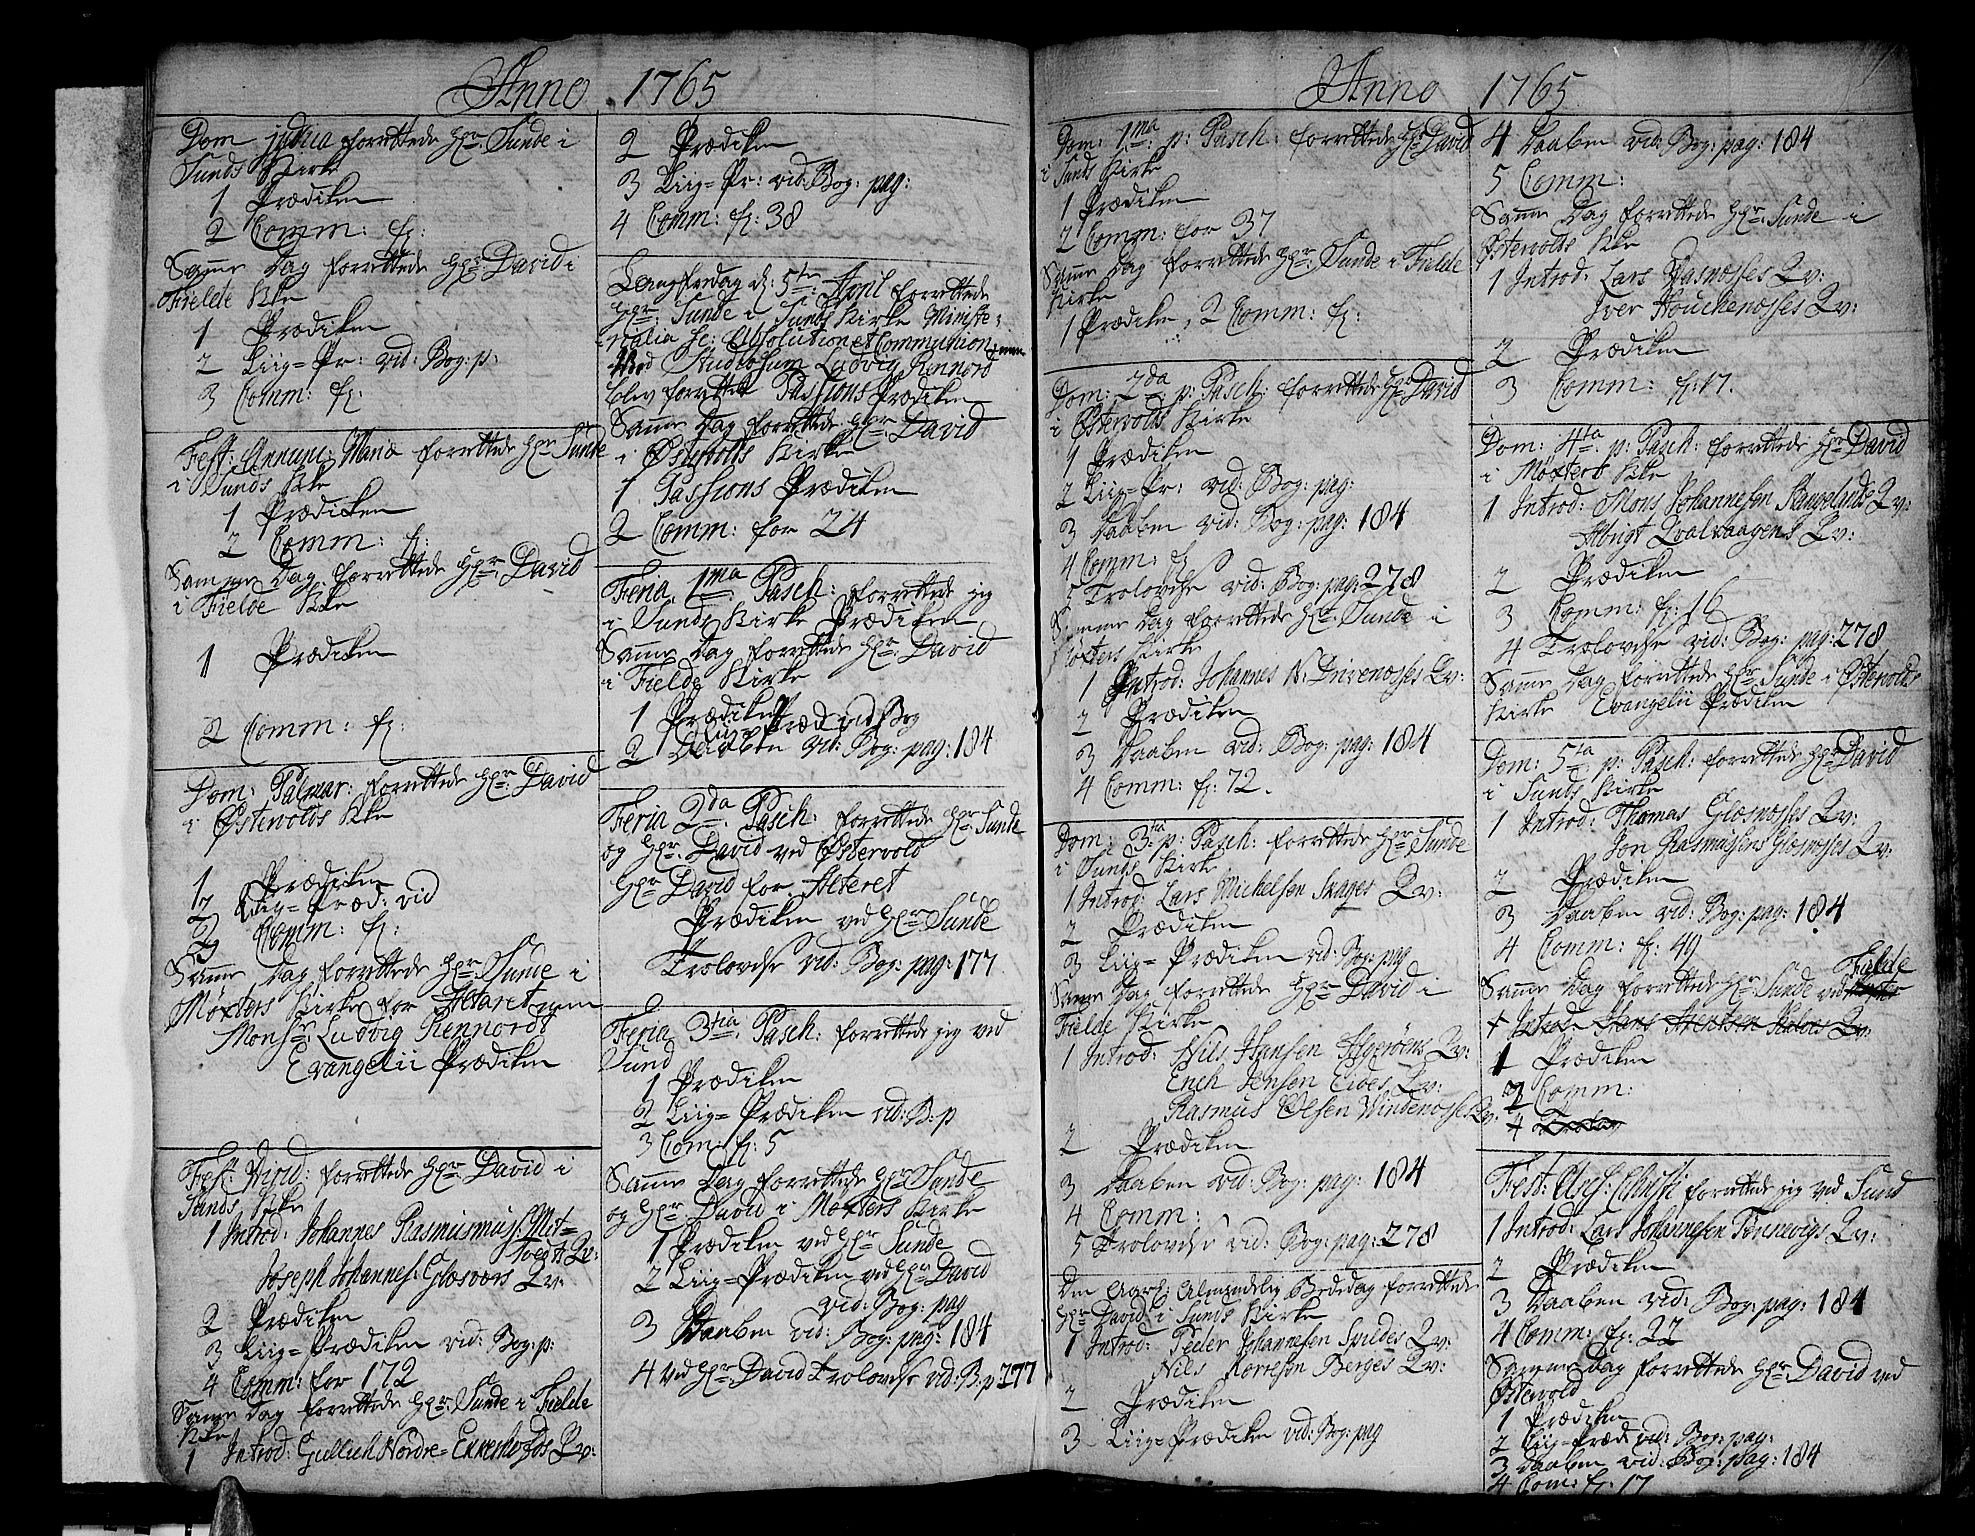 Anno 1765
Dom judica forrettede Hr: Sunde i
Sunds Kirke
1 Prædiken
2 Comm: fr:
Samme Dag forrettede Hr: David i
Fielde Kke
1 Prædiken
2 Liig=Pr: vid: Bog: p:
3 Comm: fr:
Fest: Annunc: Mariæ forrettede Hr: Sunde
i Sunds Kke
1 Prædiken
2 Comm: fr:
Samme Dag forrettede Hr: David
i Fielde Kke
1 Prædiken
2 Comm: fr:
Dom: Palmar: forrettede Hr: David
i Østevolds Kke
1 Prædiken
2 Liig=Præd: vid
3 Comm: fr:
Samme Dag forrettede Hr: Sunde i
Møxters Kirke for Altaret
Monsr: Ludvig Rennords
Evangelii Prædiken
Fest: Virid: forrettede Hr: David i
Sunds Kke
1 Introd: Johannes Rasmusmuss:
Qv:
Joseph Johannes: Glæsværs Qv:
2 Prædiken
3 Liig=Prædiken vid: Bog: p:
4 Comm: for 172
Samme dag forrettede Hr: Sunde i Fielde
Kke
1 Introd: Gullich Nordre= Qv:
2 Prædiken
3 Liig=Pr: vid: Bog: pag:
4 Comm: fr: 38
Langfredag d: 5te: April forrettede
Hr: Sunde i Sunds Kirke Ministe=
rialia sc: Absolution et Communion, men
Studiosum Ludvig Rennord
blev forrettet Passions Prædiken
Samme Dag forrettede Hr: David
i Østevolds Kirke
1. Passions Prædiken
2 Comm: for 24
Feria 1ma: Pasch: forrettede jeg
i Sunds Kirke Prædiken
Samme Dag forrettede Hr: David
i Fielde Kirke
1 Prædiken
Liig Præd: vid Bog
2 Daaben vid: Bog: pag: 184
Feria 2da: Pasch: forrettede Hr: Sunde
og Hr: David ved Østervold
Hr: David for Alteret
Prædiken ved Hr: Sunde
Trolovelse vid: Bog: pag: 177
Feria 3tia: Pasch: forrettede jeg ved
Sund
1 Prædiken
2 Liig=Prædiken vid: B: p
3 Com: fr: 5
Samme Dag forrettede Hr: Sunde
og Hr: David i Møxters Kirke
1 Prædiken ved Hr: Sunde
2 Liig=Prædiken ved Hr: David
vid: Bog: pag
3 Daaben vid: Bog: pag: 184
4 Ved Hr: David Trolovelse vid: B: p 277
Anno 1765
Dom: 1ma: p: Pasch: forrettede Hr: David
i Sunds Kirke
1 Prædiken
2 Comm: for 37
Samme Dag forrettede Hr: Sunde i Fielde
Kirke
1 Prædiken, 2 Comm: fr:
Dom: 2da: p: Pasch: forrettede Hr: David
i Østervolds Kirke
1 Prædiken
2 Liig=Pr: vid: Bog: pag:
3 Daaben vid: Bog: pag: 184
4 Comm: fr
5 Trolovelse vid: Bog: pag: 278
Samme Dag forrettede Hr: Sunde i
Møxters Kirke
1 Introd: Johannes N: Drivenæsses Qv:
2 Prædiken
3 Daaben vid: Bog: pag: 184
4 Comm: fr: 72.
Dom: 3tia: p: Pasch: forrettede Hr: Sunde
i Sunds Kirke
1 Introd: Lars Michelsen Skages Qv:
2 Prædiken
3 Liig=Prædiken vid: Bog: pag
Samme Dag forrettede Hr: David i
Fielde Kirke
1 Introd: Nils Hansen Algerøens Qv:
Erich Jensen Eides Qv:
Rasmus Olsen Windenæsses Qv:
2 Prædiken
3 Daaben vid: Bog: pag: 184
4 Comm:
5 Trolovelse vid: Bog: pag: 278
Den Almindelig Bededag forrettede
Hr: David i Sunds Kirke
1 Introd: Peder Johannesen Spildes Qv:
Nils Berges Qv:
2 Prædiken
3 Liig=Prædiken vid: Bog: pag
4 Daaben vid: Bog: pag: 184
5 Comm:
Samme Dag forrettede Hr: Sunde i
Østervolds Kke
1 Introd: Lars Qv:
Iver Houchenæsses Qv:
2 Prædiken
3 Comm: fr: 17.
Dom: 4ta: p: Pasch: forrettede Hr: David
i Møxters Kke
1 Introd: Mons Johannesen Stangelands Qv:
Abigt Qvalvaagens Qv:
2 Prædiken
3 Comm: fr: 16
4 Trolovelse vid: Bog: pag: 278
Samme Dag forrettede Hr: Sunde i Østervolds
Kirke Evangelii Prædiken
Dom: 5ta: p: Pasch: forrettede Hr: David
i Sunds Kirke
1 Introd: Thomas Glæsnæsses Qv:
Jon Rasmussens Glæsnæsses Qv:
2 Prædiken
3 Daaben vid: Bog: pag: 184
4 Comm: fr: 49
Samme Dag forrettede Hr: Sunde ved Fielde
1 Prædiken
2 Comm:
Fest: Asc: Christi forrettede jeg ved Sund
1 Introd: Lars Johannesen Tørnevigs Qv:
2 Prædiken
3 Daaben vid: Bog: pag: 184
4 Comm: fr: 22
Samme Dag forrettede Hr: David ved
Østervold
1 Prædiken
2 Liig=Præd: vid: Bog: pag:
3 Daaben vid: Bog: pag: 184
4 Com: fr: 17